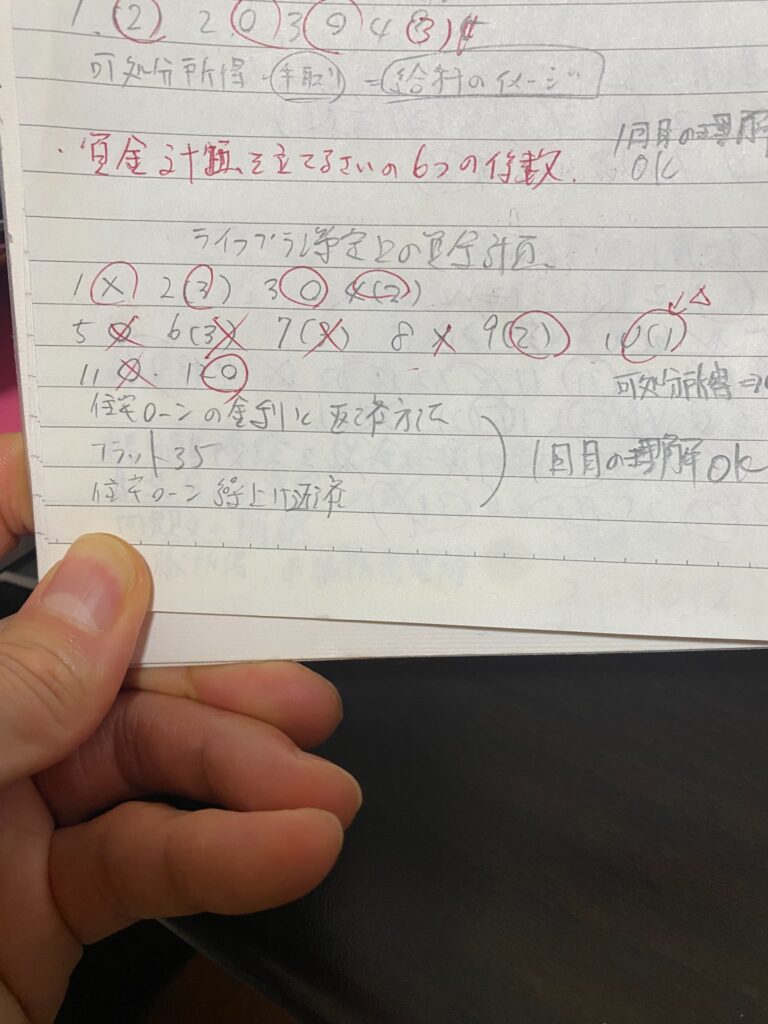 1. (2) 2 (0) 3 (9) 4 (3)
可処分所得・手取り=給料のイメージ
・資金計画を立てるさいの6つの係数.
1回目の理解
OK
ライフプラン策定上の資金計画
1 (×) 2 (3) 3 (0) 4 (2)
5 6 (3) 7 (3) 8 × 9 (2) 10 (1) △
11 0. 12 0
可処分所得⇒
住宅ローンの金利と返済方法
フラット35
住宅ローン繰上げ返済
1回目の理解OK